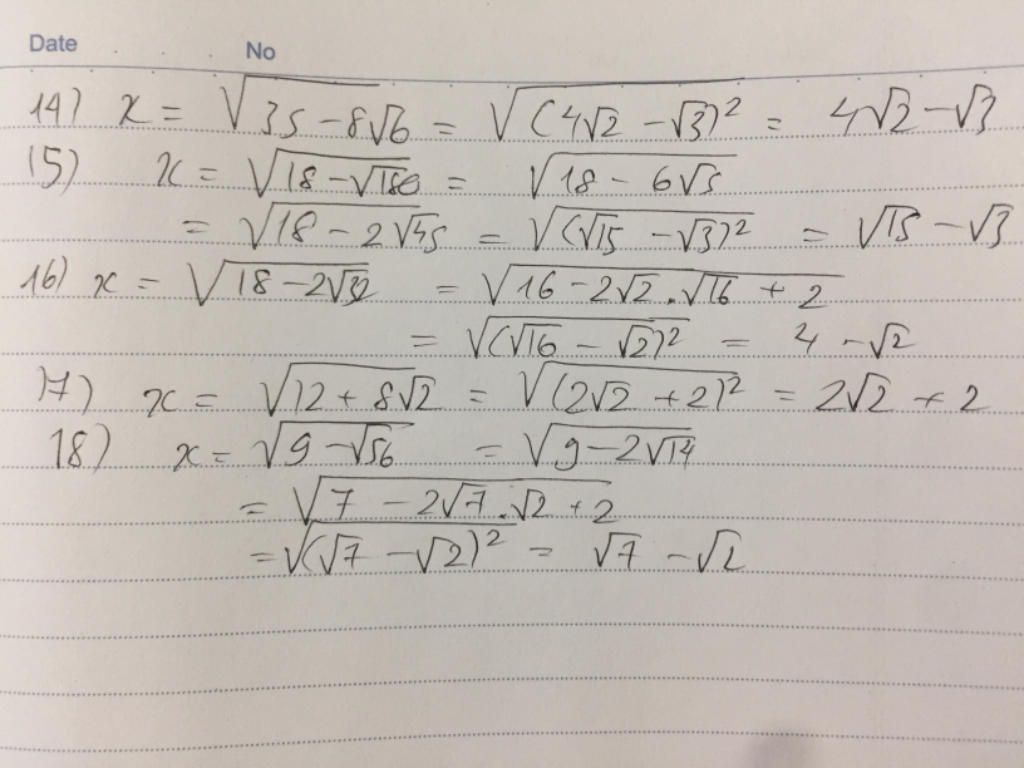 Date No
14) x = √(35 - 8√6) = √((4√2 - √3)²) = 4√2 - √3
15) x = √(18 - √180) = √(18 - 6√5)
= √(18 - 2√45) = √((√15 - √3)²) = √15 - √3
16) x = √(18 - 2√32) = √(16 - 2√2.√16 + 2)
= √((√16 - √2)²) = 4 - √2
17) x = √(12 + 8√2) = √((2√2 + 2)²) = 2√2 + 2
18) x = √(9 - √56) = √(9 - 2√14)
= √(7 - 2√7.√2 + 2)
= √((√7 - √2)²) = √7 - √2